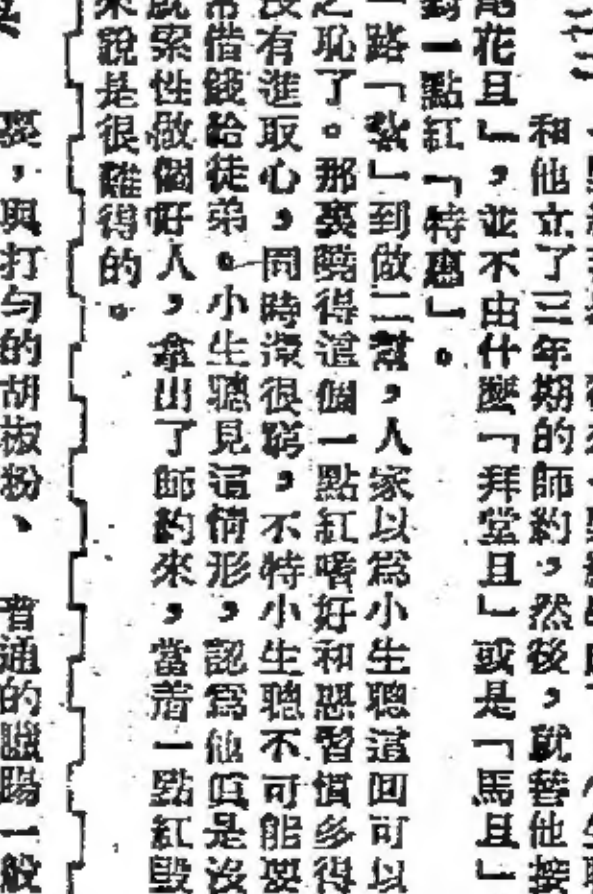 和他立了三年期的師約，然後，就替他接
花且」，並不由什麼「拜堂且」或是「馬且」
到一點紅「特惠」。
一路「紮」到做二幫，人家以爲小生聰這回可以
之恥了。那裏曉得這個一點紅嗜好和惡習慣多得
沒有進取心，同時還很窮，不特小生聰不可能要
常借錢給徒弟。小生聰見這情形，認爲他眞是沒
就索性做個好人，拿出了師約來，當着一點紅毀
來說是很難得的。
要，與打勻的胡椒粉、 普通的臘腸一般